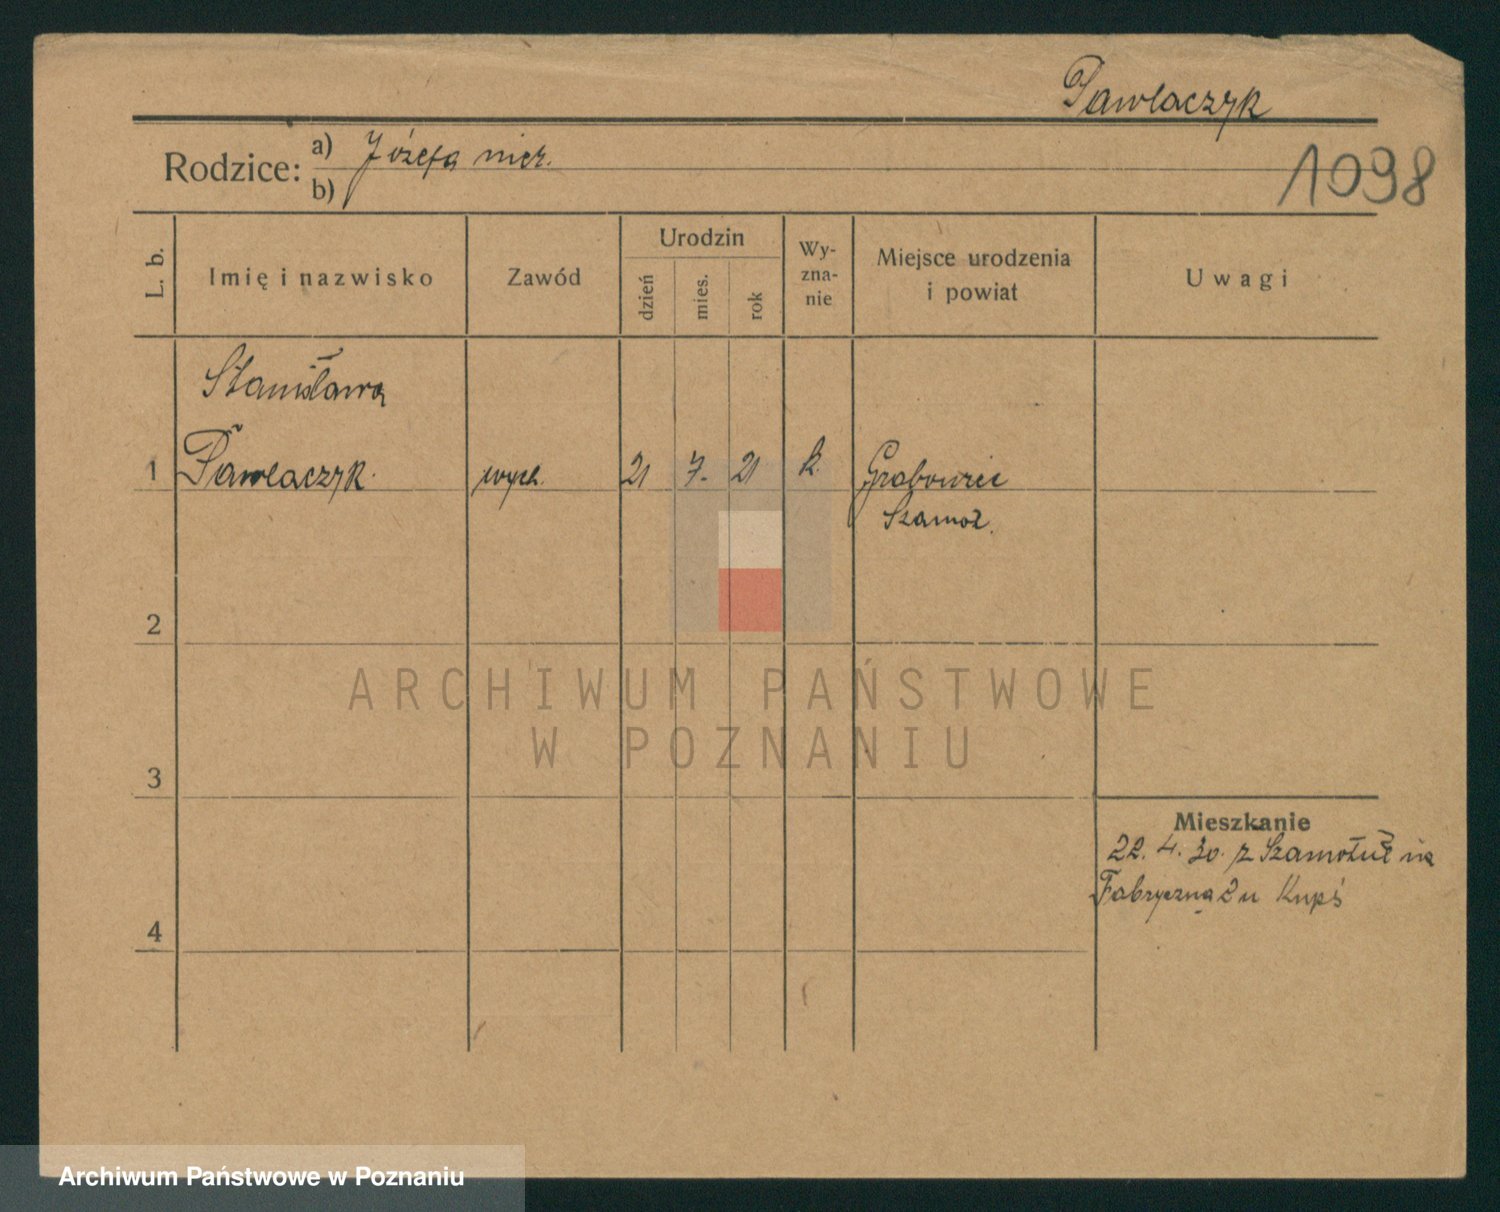 Pawlaczyk
Rodzice: a) Józefa niez.
b)
1098
L. b.
Imię i nazwisko
Zawód
Urodzin
dzień
mies.
rok
Wy-
zna-
nie
Miejsce urodzenia
i powiat
Uwagi
Stanisława
1 Pawlaczyk wych. 21 7. 21 k. Grabowiec
Szamot.
2
3
4
Mieszkanie
22. 4. 30. z Szamotuł na
Fabryczną 2 u Kupś
ARCHIWUM PAŃSTWOWE
W POZNANIU
Archiwum Państwowe w Poznaniu